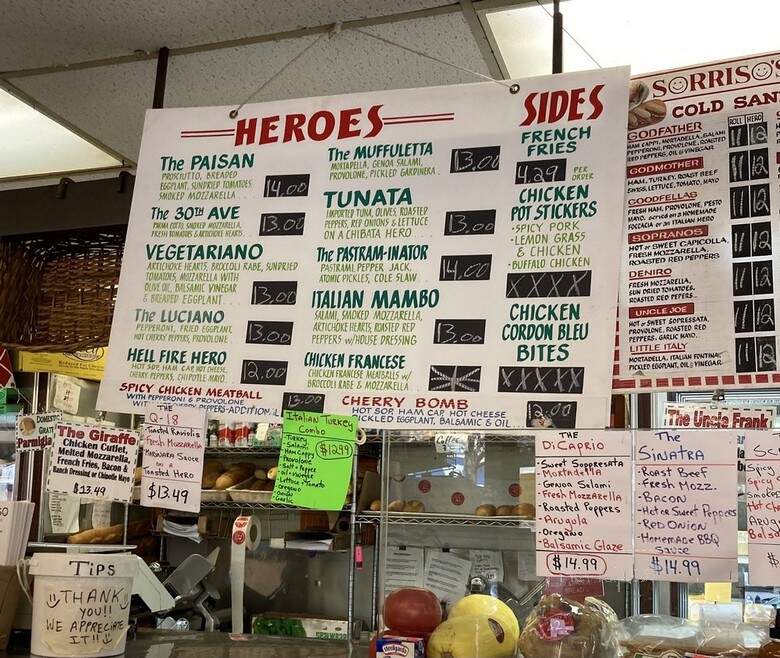 HEROES
The PAISAN
PROSCIUTTO, BREADED
EGGPLANT, SUNDRIED TOMATOES,
SMOKED MOZZARELLA
14.00
The 30TH AVE
FRESH TOMATOES & ARTICHOKE HEARTS
13.00
VEGETARIANO
ARTICHOKE HEARTS, BROCCOLI RABE, SUNDRIED
TOMATOES, MOZZARELLA WITH
OLIVE OIL, BALSAMIC VINEGAR
& BREADED EGGPLANT
13.00
The LUCIANO
PEPPERONI, FRIED EGGPLANT,
HOT CHERRY PEPPERS, PROVOLONE
13.00
HELL FIRE HERO
HOT SOP, HAM CAP, HOT CHEESE,
CHERRY PEPPERS, CHIPOTLE MAYO
12.00
SPICY CHICKEN MEATBALL
WITH PEPPERONI & PROVOLONE
PEPPERS-ADDITIONAL
13.00
The MUFFULETTA
MORTADELLA, GENOA SALAMI,
PROVOLONE, PICKLED GARDINERA
13.00
TUNATA
IMPORTED TUNA, OLIVES, ROASTED
PEPPERS, RED ONIONS & LETTUCE
ON A CHIBATA HERO
13.00
The PASTRAM-INATOR
PASTRAMI, PEPPER JACK,
ATOMIC PICKLES, COLE SLAW
14.00
ITALIAN MAMBO
SALAMI, SMOKED MOZZARELLA,
ARTICHOKE HEARTS, ROASTED RED
PEPPERS w/HOUSE DRESSING
13.00
CHICKEN FRANCESE
CHICKEN FRANCESE MEATBALLS w/
BROCCOLI RABE & MOZZARELLA
CHERRY BOMB
HOT SOP, HAM CAP, HOT CHEESE
PICKLED EGGPLANT, BALSAMIC & OIL
12.00
SIDES
FRENCH
FRIES
4.29 PER
ORDER
CHICKEN
POT STICKERS
-SPICY PORK
-LEMON GRASS
& CHICKEN
-BUFFALO CHICKEN
XXXX
CHICKEN
CORDON BLEU
BITES
XXXXX
SORRISO'S
COLD SAN
ROLL HERO
GODFATHER
HAM CAPPI, MORTADELLA, SALAMI
PEPPERONI, PROVOLONE, ROASTED
RED PEPPERS, OIL & VINEGAR
11 12
GODMOTHER
HAM, TURKEY, ROAST BEEF
SWISS, LETTUCE, TOMATO, MAYO
11 12
GOODFELLAS
FRESH HAM, PROVOLONE, PESTO
MAYO, served on a HOMEMADE
FOCACCIA or an ITALIAN HERO
11 12
SOPRANOS
HOT or SWEET CAPICOLLA,
FRESH MOZZARELLA,
ROASTED RED PEPPERS
11 12
DENIRO
FRESH MOZZARELLA,
SUN DRIED TOMATOES,
ROASTED RED PEPPERS
11 12
UNCLE JOE
HOT or SWEET SOPRESSATA,
PROVOLONE, ROASTED RED
PEPPERS, GARLIC MAYO
11 12
LITTLE ITALY
MORTADELLA, ITALIAN FONTINA,
PICKLED EGGPLANT, OIL & VINEGAR
11 12
DOMESTIC
GRATY
Parmigia
The Giraffe
Chicken Cutlet,
Melted Mozzarella,
French Fries, Bacon &
Ranch Dressing or Chipotle Mayo
$13.49
THE
Q-18
Toasted Raviolis
Fresh Mozzarella
Marinara Sauce
ON A
Toasted Hero
$13.49
Italian Turkey
Combo
-Turkey
-Salami
-Ham Cappy
-Provolone
-Salt + Pepper
-oil + vinegar
-Lettuce + Tomato
-oregano
-onion
-Garlic
$12.99
THE
DiCaprio
-Sweet Soppresata
-Mortadella
-Genoa Salami
-Fresh Mozzarella
-Roasted Peppers
-Arugula
-Oregano
-Balsamic Glaze
$14.99
The
Sinatra
-Roast Beef
-Fresh Mozz.
-Bacon
-Hot or Sweet Peppers
-Red Onion
-Homemade BBQ
Sauce
$14.99
The Uncle Frank
TIPS
THANK
YOU!!
WE APPRECIATE
IT!!